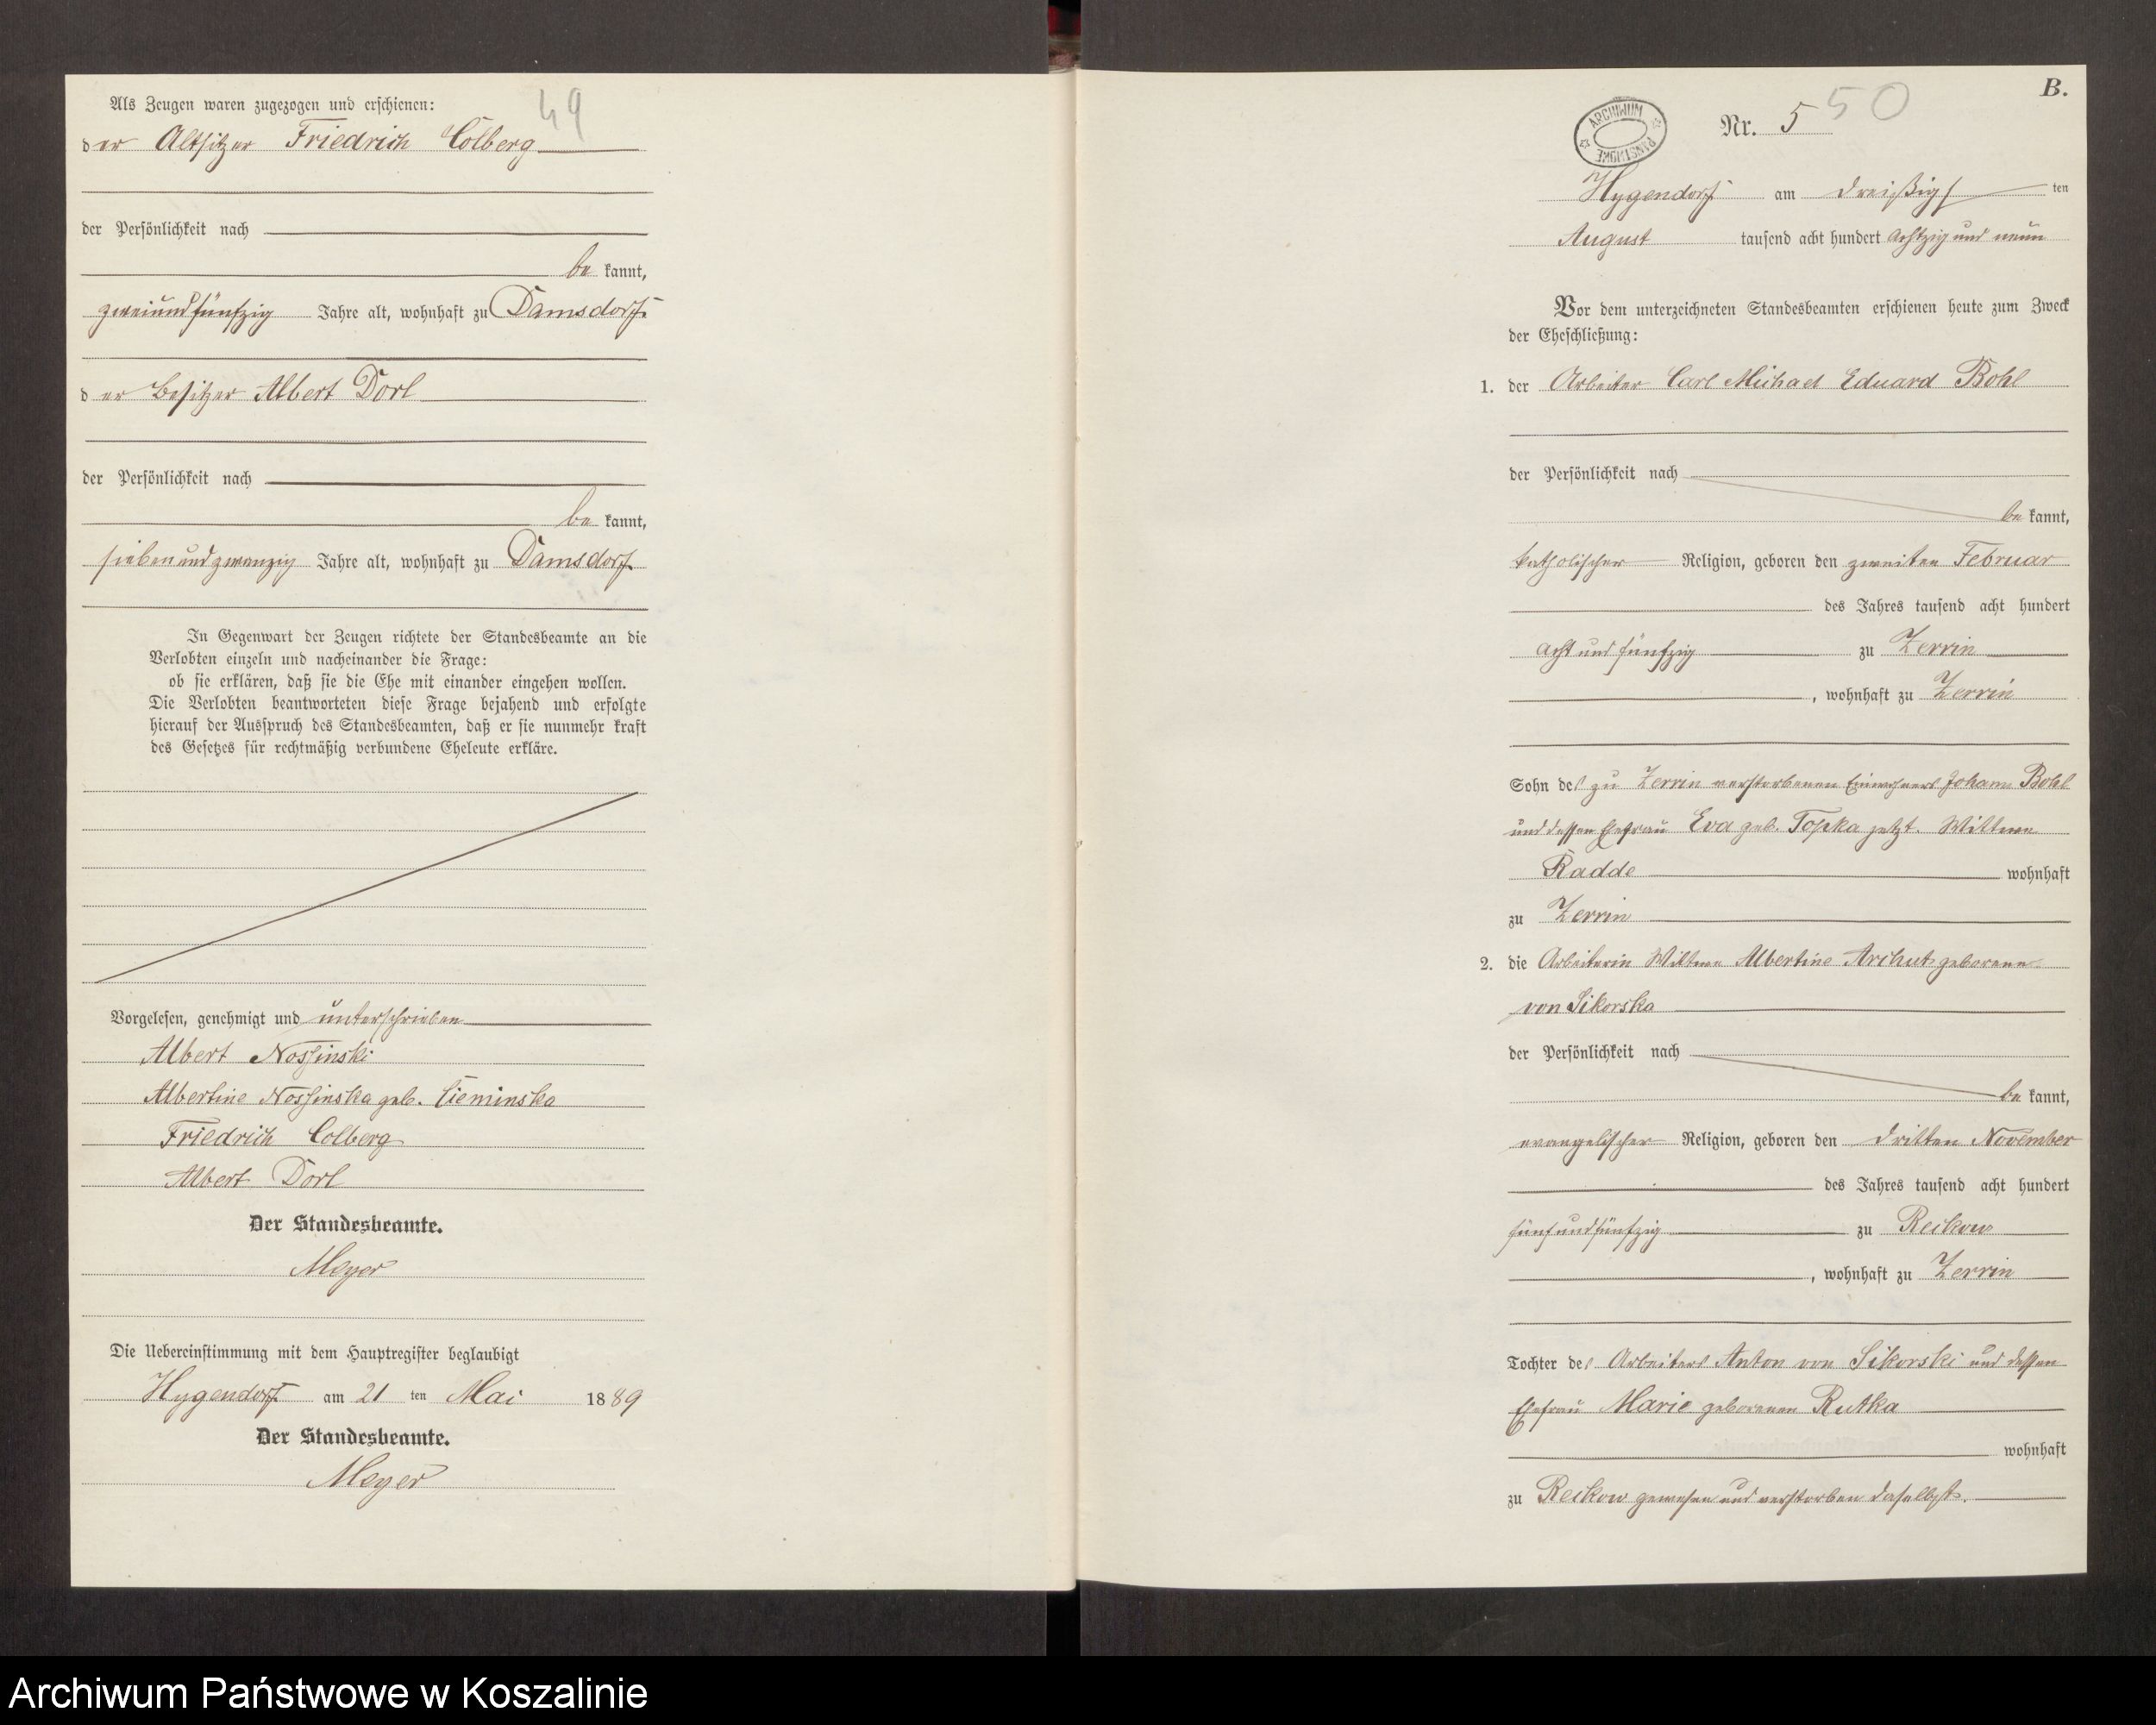 49
Als Zeugen waren zugezogen und erschienen:
der Altsitzer Friedrich Colberg
der Persönlichkeit nach
be kannt,
zweiundfünfzig Jahre alt, wohnhaft zu Damsdorf
der Besitzer Albert Dorl
der Persönlichkeit nach
be kannt,
siebenundzwanzig Jahre alt, wohnhaft zu Damsdorf
In Gegenwart der Zeugen richtete der Standesbeamte an die
Verlobten einzeln und nacheinander die Frage:
ob sie erklären, daß sie die Ehe mit einander eingehen wollen.
Die Verlobten beantworteten diese Frage bejahend und erfolgte
hierauf der Ausspruch des Standesbeamten, daß er sie nunmehr kraft
des Gesetzes für rechtmäßig verbundene Eheleute erkläre.
Vorgelesen, genehmigt und unterschrieben
Albert Nossinski
Albertine Nossinska geb. Cieminska
Friedrich Colberg
Albert Dorl
Der Standesbeamte.
Meyer
Die Uebereinstimmung mit dem Hauptregister beglaubigt
Hygendorf am 21 ten Mai 1889
Der Standesbeamte.
Meyer
B.
ARCHIWUM PAŃSTWOWE
Nr. 5 50
Hygendorf am dreißigs ten
August tausend acht hundert achtzig und neun
Vor dem unterzeichneten Standesbeamten erschienen heute zum Zweck
der Eheschließung:
1. der Arbeiter Carl Michael Eduard Bohl
der Persönlichkeit nach
be kannt,
katholischer Religion, geboren den zweiten Februar
des Jahres tausend acht hundert
acht und fünfzig zu Zerrin
, wohnhaft zu Zerrin
Sohn des zu Zerrin verstorbenen Einwohners Johann Bohl
und dessen Ehefrau Eva geb. Topka jetzt. Wittwe
Radde wohnhaft
zu Zerrin
2. die Arbeiterin Wittwe Albertine Archut geborene
von Sikorska
der Persönlichkeit nach
be kannt,
evangelischer Religion, geboren den dritten November
des Jahres tausend acht hundert
fünfundfünfzig zu Reckow
, wohnhaft zu Zerrin
Tochter des Arbeiters Anton von Sikorski und dessen
Ehefrau Marie geborenen Rutka
wohnhaft
zu Reckow gewesen und verstorben daselbst.
Archiwum Państwowe w Koszalinie